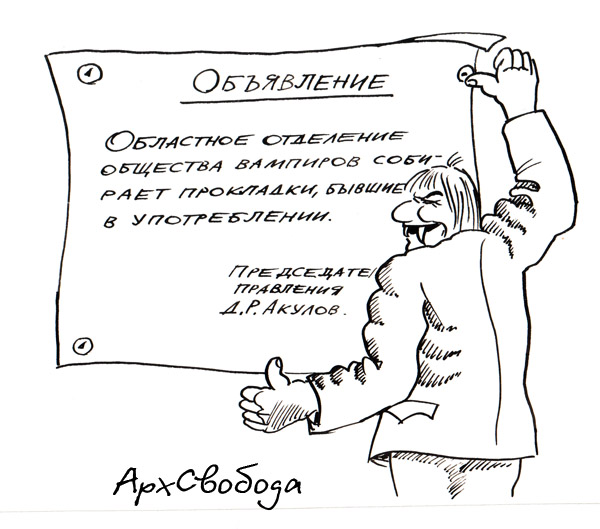 ОБЪЯВЛЕНИЕ
ОБЛАСТНОЕ ОТДЕЛЕНИЕ
ОБЩЕСТВА ВАМПИРОВ СОБИ-
РАЕТ ПРОКЛАДКИ, БЫВШИЕ
В УПОТРЕБЛЕНИИ.
ПРЕДСЕДАТЕ
ПРАВЛЕНИЯ
Д.Р. АКУЛОВ.
АрхСвобода